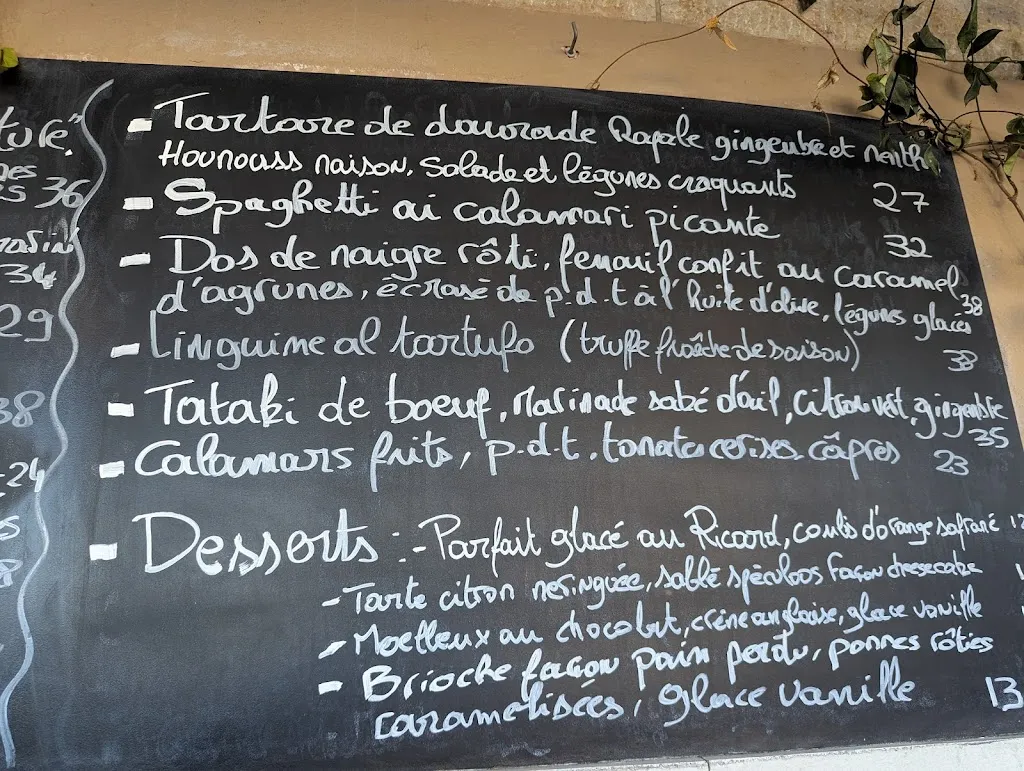 ture."
es 36
34
29
38
24
- Tartare de daurade Rapale gingembre et menthe
Houmouss maison, Salade et légumes craquants 27
- Spaghetti ai calamari picante 32
- Dos de maigre rôti, fenouil confit au caramel
d'agrumes, écrasé de p.d.t à l'huile d'olive, légumes glacés 38
- Linguine al tartufo (truffe fraîche de saison) 38
- Tataki de boeuf, marinade sabé d'ail, citron vert, gingembre 35
- Calamars frits, p.d.t, tomates cerises câpres 23
- Desserts : - Parfait glacé au Ricard, coulis d'orange safrané
- Tarte citron meringuée, sablé spéculoos façon cheesecake
- Moelleux au chocolat, crème anglaise, glace vanille
- Brioche façon pain perdu, pommes rôties
caramelisées, glace vanille 13